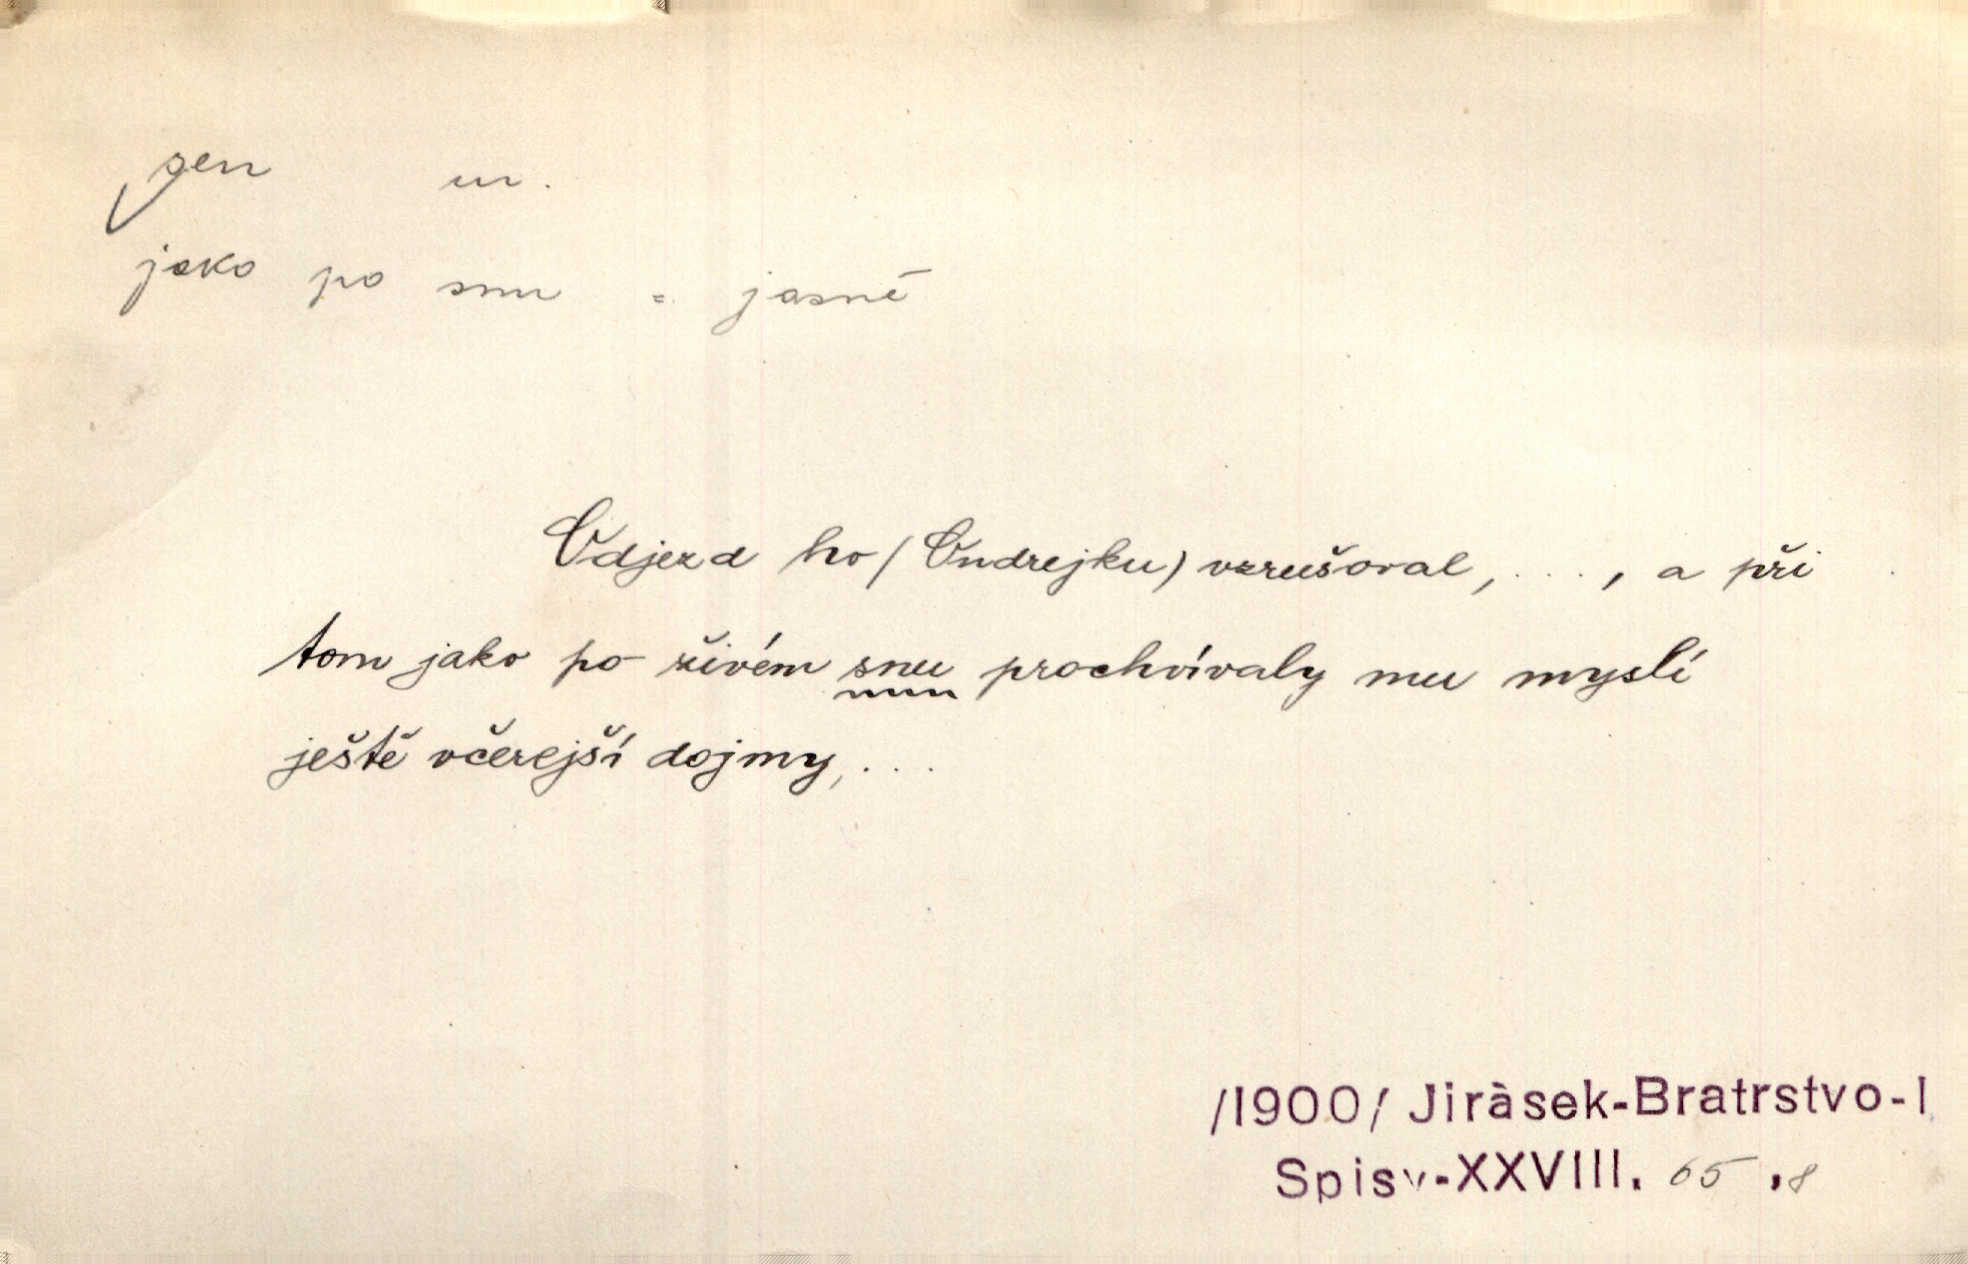 sen m.
jako po snu = jasně
Odjezd ho (Ondrejku) vzrušoval, ..., a při
tom jako po živém snu prochvívaly mu myslí
ještě včerejší dojmy, ...
/1900/ Jiràsek-Bratrstvo-I
Spisy-XXVIII. 65 .8